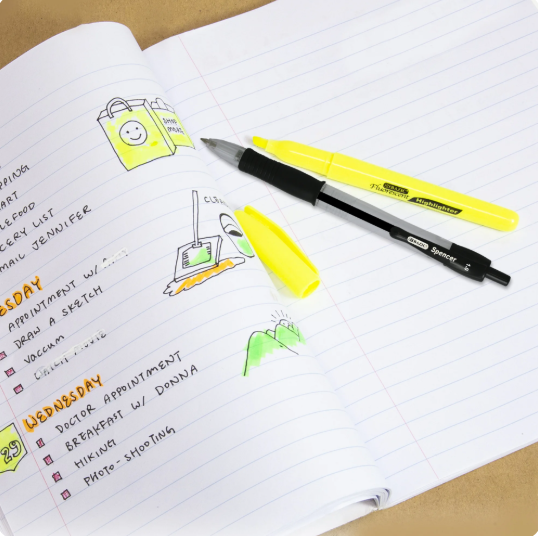 PPING
ART
EFOOD
CERY LIST
MAIL JENNIFER
ESDAY
APPOINTMENT W/
DRAW A SKETCH
VACCUM
WEDNESDAY
DOCTOR APPOINTMENT
BREAKFAST W/ DONNA
HIKING
PHOTO-SHOOTING
29
SHOP
CLEA
BAZIC
Fluorescent Highlighter
BAZIC Spencer